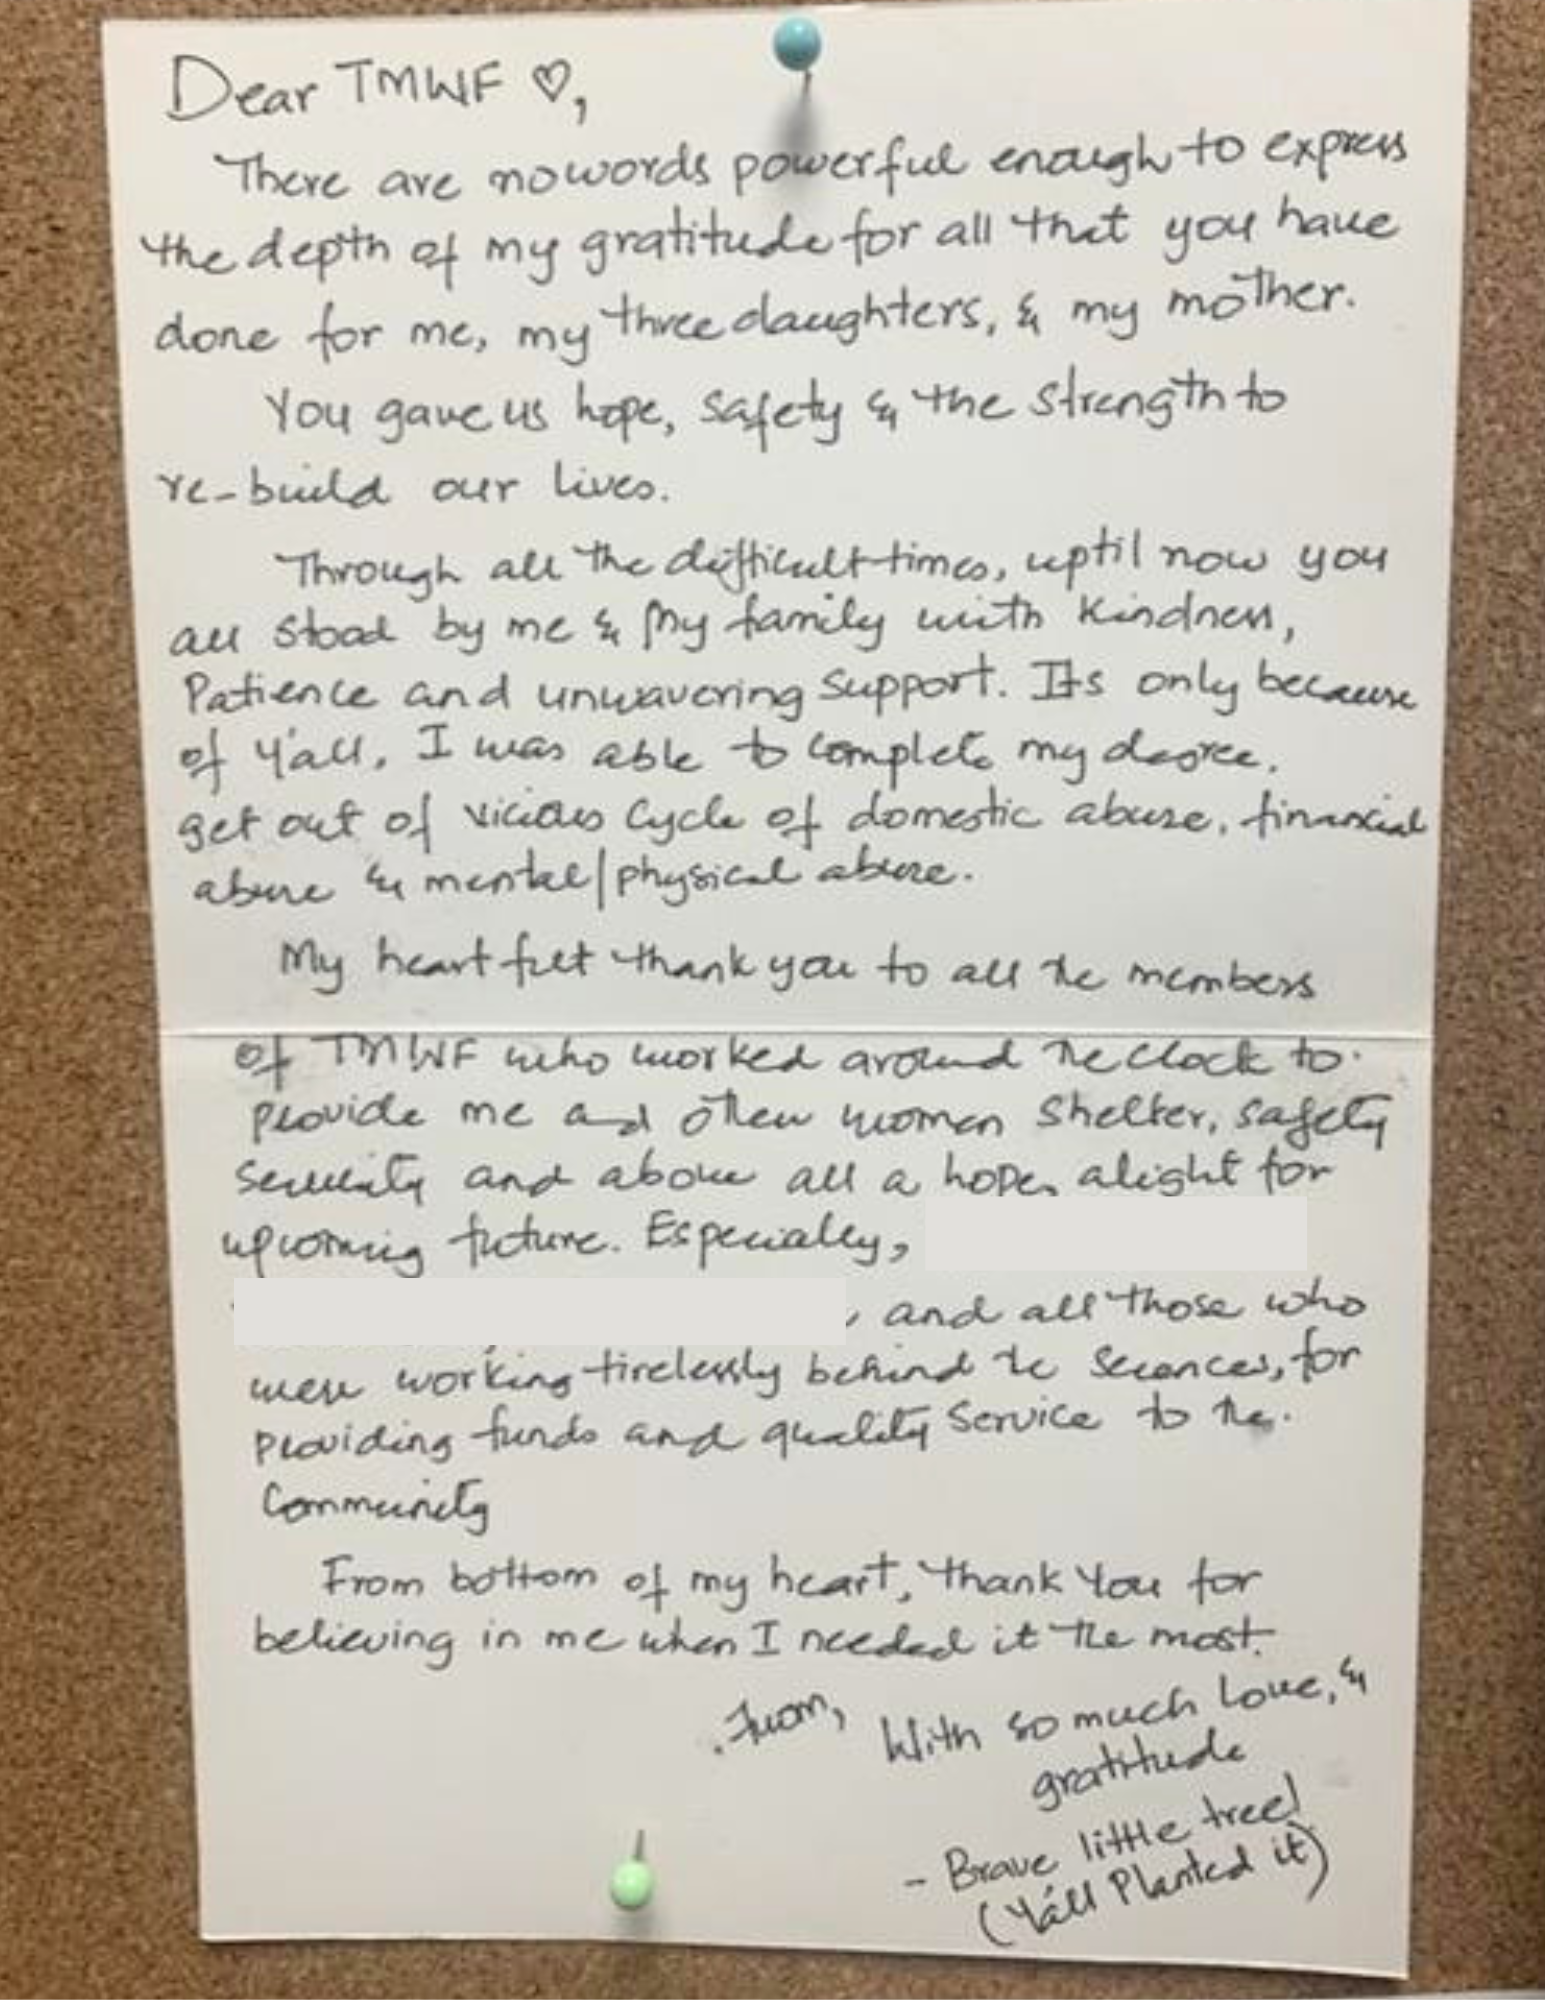 Dear TMWF ♡,
There are no words powerful enough to express
the depth of my gratitude for all that you have
done for me, my three daughters, & my mother.
You gave us hope, safety & the strength to
re-build our lives.
Through all the difficult times, uptil now you
all stood by me & My family with kindness,
Patience and unwavering support. Its only because
of y'all, I was able to complete my degree.
get out of vicious cycle of domestic abuse, financial
abuse & mental/physical abuse.
My heart felt thank you to all the members
of TMWF who worked around the clock to
provide me and other women shelter, safety
security and above all a hope, alight for
upcoming future. Especially,
, and all those who
were working tirelessly behind the scences, for
providing funds and quality service to the.
Community
From bottom of my heart, thank you for
believing in me when I needed it the most.
From,
With so much love, &
gratitude
- Brave little tree!
(Y'all Planted it)